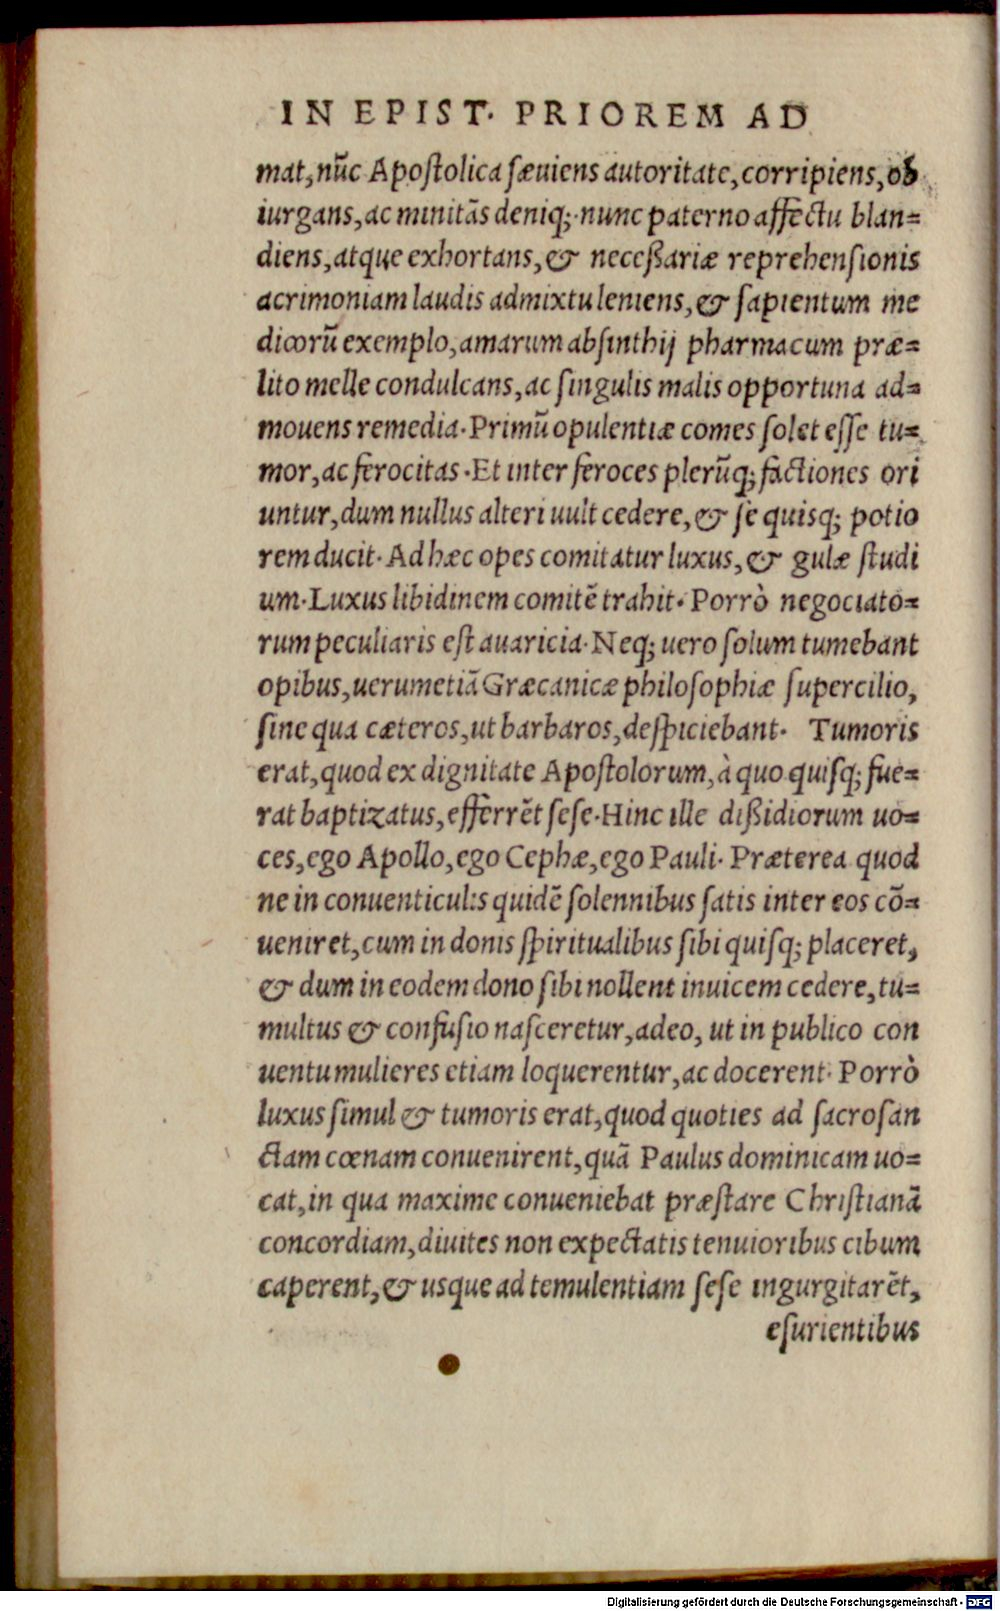 IN EPIST. PRIOREM AD
mat, nūc Apoſtolica ſæuiens autoritate, corripiens, ob
iurgans, ac minitās deniq;· nunc paterno affectu blan=
diens, atque exhortans, & neceßariæ reprehenſionis
acrimoniam laudis admixtu leniens, & ſapientum me
dicorū exemplo, amarum abſinthij pharmacum præ=
lito melle condulcans, ac ſingulis malis opportuna ad=
mouens remedia. Primū opulentiæ comes ſolet eſſe tu=
mor, ac ferocitas. Et inter feroces plerūq; factiones ori
untur, dum nullus alteri uult cedere, & ſe quisq; potio
rem ducit. Ad hæc opes comitatur luxus, & gulæ ſtudi
um. Luxus libidinem comitē trahit. Porrò negociato=
rum peculiaris eſt auaricia. Neq; uero ſolum tumebant
opibus, uerumetiā Græcanicæ philoſophiæ ſupercilio,
ſine qua cæteros, ut barbaros, deſpiciebant. Tumoris
erat, quod ex dignitate Apoſtolorum, à quo quiſq; fue=
rat baptizatus, efferrēt ſeſe. Hinc ille dißidiorum uo=
ces, ego Apollo, ego Cephæ, ego Pauli. Præterea quod
ne in conuenticulis quidē ſolennibus ſatis inter eos cō=
ueniret, cum in donis ſpiritualibus ſibi quiſq; placeret,
& dum in eodem dono ſibi nollent inuicem cedere, tu=
multus & confuſio naſceretur, adeo, ut in publico con
uentu mulieres etiam loquerentur, ac docerent. Porrò
luxus ſimul & tumoris erat, quod quoties ad ſacroſan
ctam cœnam conuenirent, quā Paulus dominicam uo=
cat, in qua maxime conueniebat præſtare Chriſtianā
concordiam, diuites non expectatis tenuioribus cibum
caperent, & usque ad temulentiam ſeſe ingurgitarēt,
eſurientibus
Digitalisierung gefördert durch die Deutsche Forschungsgemeinschaft - DFG